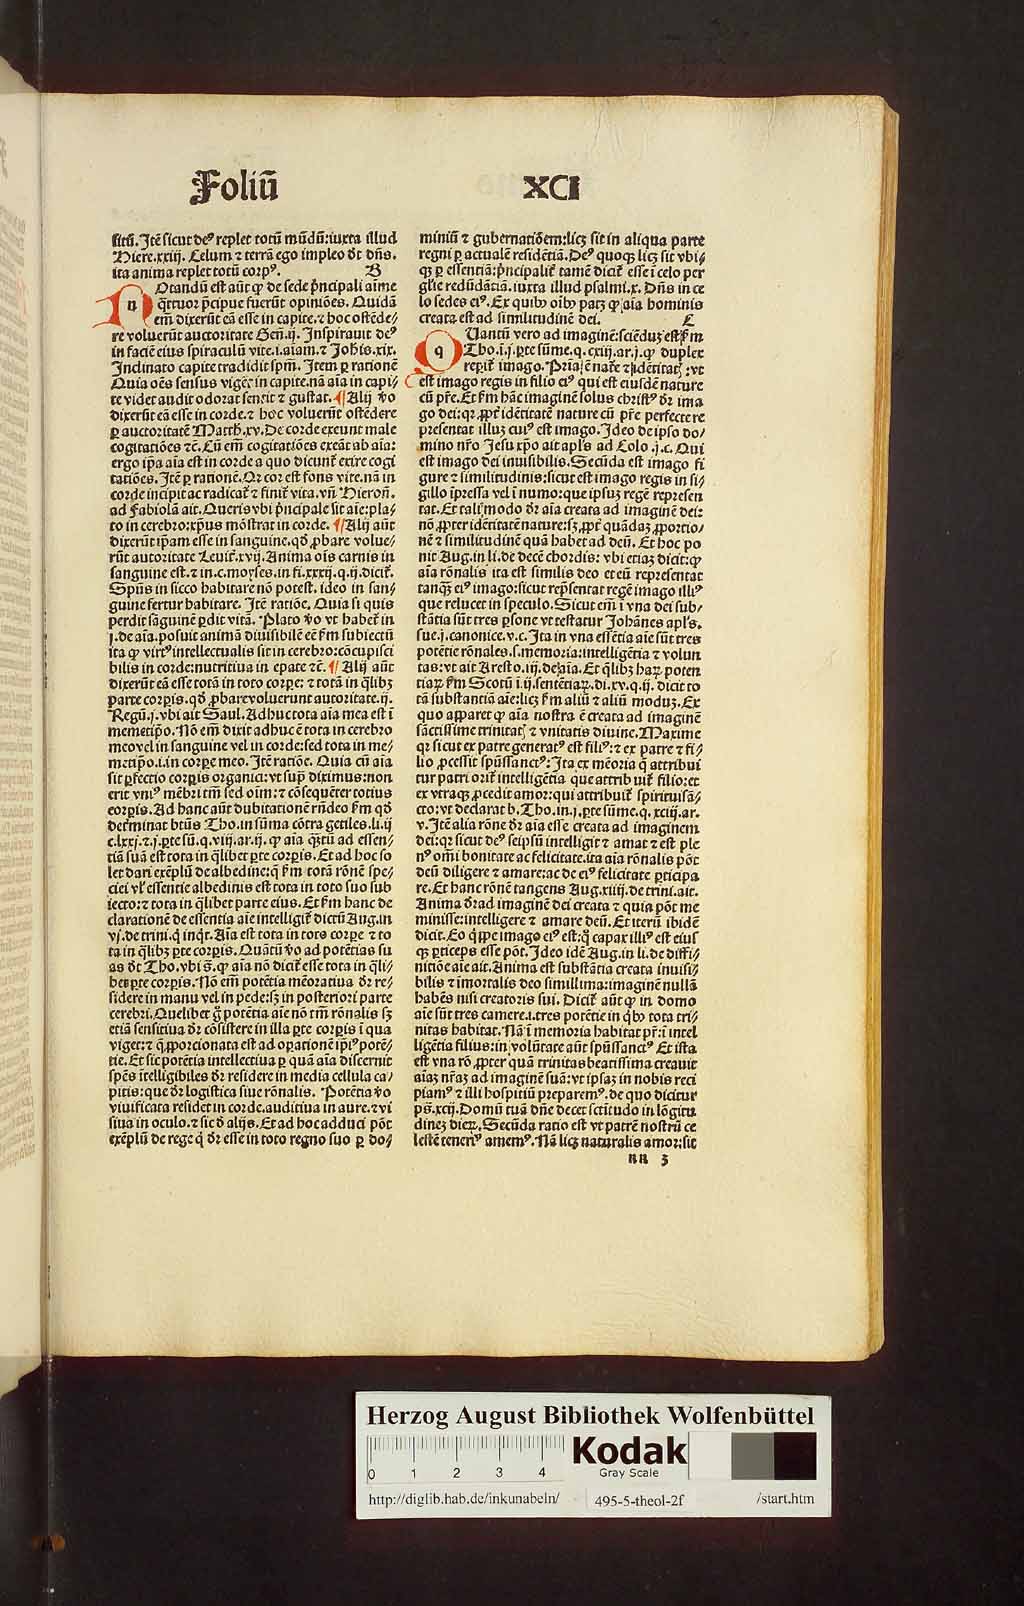 Foliū XCI
sitū. Itē sicut de⁹ replet totū mūdū: iuxta illud
Hiere. xxiij. Celum ⁊ terrā ego impleo dt dn̄s.
ita anima replet totū corp⁹. B
NOtandū est aūt ꝙ de sede pn̄cipali aīme
q̄ttuor p̄cipue fuerūt opiniōes. Quidā
em̄ dixerūt eā esse in capite. ⁊ hoc ostēde/
re voluerūt auctoritate Gen̄. ij. Inspirauit de⁹
in faciē eius spiraculū vite. i. aīam. ⁊ Johīs. xix.
Inclinato capite tradidit spm̄. Item ꝑ rationē
Quia oēs sensus vigēt in capite. nā aīa in capi/
te videt audit odorat sentit ⁊ gustat. ¶ Alij v̄o
dixerūt eā esse in corde. ⁊ hoc voluerūt ostēdere
ꝑ auctoritatē Matth. xv. De corde exeunt male
cogitatiōes ⁊c̄. Cū em̄ cogitatiōes exeāt ab aīa:
ergo ip̄a aīa est in corde a quo dicunt̄ exire cogi
tatiōes. Itē ꝑ rationē. Qr cor est fons vite. nā in
corde incipit ac radicat̄ ⁊ finit̄ vita. vn̄ Hieron̄.
ad Fabiolā ait. Queris vbi pn̄cipale sit aīe: pla/
to in cerebro: xp̄us mōstrat in corde. ¶ Alij aūt
dixerūt ip̄am esse in sanguine. qd̄ ꝓbare volue/
rūt autoritate Leuit̄. xvij. Anima oīs carnis in
sanguine est. ⁊ in. c. moyses. in fi. xxxij. q. ij. dicit̄.
Spūs in sicco habitare nō potest. ideo in san/
guine fertur habitare. Itē ratiōe. Quia si quis
perdit sāguinē ꝑdit vitā. Plato v̄o vt habet̄ in
j. de aīa. posuit animā diuisibilē eē ẜm subiectū
ita ꝙ virt⁹ intellectualis sit in cerebro: cōcupisci
bilis in corde: nutritiua in epate ⁊c̄. ¶ Alij aūt
dixerūt eā esse totā in toto corꝑe: ⁊ totā in q̄libꝫ
parte corꝑis. qd̄ ꝓbare voluerunt autoritate. ij.
Regū. j. vbi ait Saul. Adhuc tota aīa mea est ī
memetip̄o. Nō em̄ dixit adhuc ē tota in cerebro
meo vel in sanguine vel in corde: sed tota in me/
metip̄o. i. in corꝑe meo. Itē ratiōe. Quia cū aīa
sit ꝑfectio corꝑis organici: vt sup̄ diximus: non
erit vni⁹ mēbri tm̄ sed oīm: ⁊ cōsequēter totius
corꝑis. Ad hanc aūt dubitationē rn̄deo ẜm qd̄
det̄minat btūs Tho. in sūma cōtra gētiles. li. ij
c. lxxj. ⁊. j. ꝑte sū. q. viij. ar. ij. ꝙ aīa q̄tū ad essen/
tiā suā est tota in q̄libet ꝑte corꝑis. Et ad hoc so
let dari exēplū de albedine: q̄ ẜm totā rōnē spe/
ciei vl̓ essentie albedinis est tota in toto suo sub
iecto: ⁊ tota in q̄libet parte eius. Et ẜm hanc de
clarationē de essentia aīe intelligit̄ dictū Aug. in
vj. de trini. q̄ inqt. Aīa est tota in toto corꝑe ⁊ to
ta in q̄libꝫ ꝑte corꝑis. Quātū v̄o ad potētias su
as dt Tho. vbi s̄. ꝙ aīa nō dicit̄ esse tota in q̄li/
bet ꝑte corꝑis. Nō em̄ potētia mēoratiua dr̄ re/
sidere in manu vel in pede: sꝫ in posteriori parte
cerebri. Quelibet g̊ potētia aīe nō tm̄ rōnalis sꝫ
etiā sensitiua dr̄ cōsistere in illa ꝑte corꝑis ī qua
viget: ⁊ q̄ ꝓporcionata est ad oꝑationē ip̄i⁹ potē/
tie. Et sic potētia intellectiua ꝑ quā aīa discernit
spēs ītelligibiles dr̄ residere in media cellula ca/
pitis: que dr̄ logistica siue rōnalis. Potētia v̄o
viuificata residet in corde. auditiua in aure. ⁊ vi
siua in oculo. ⁊ sic d̄ alijs. Et ad hoc adduci pōt
exēplū de rege q̄ dr̄ esse in toto regno suo ꝑ do/
miniū ⁊ gubernatiōem: licꝫ sit in aliqua parte
regni ꝑ actualē residētiā. De⁹ quoqꝫ licꝫ sit vbi/
qꝫ ꝑ essentiā: pn̄cipalit̄ tamē dicit̄ esse ī celo per
gl̄ie redūdātiā. iuxta illud psalmi. x. Dn̄s in ce
lo sedes ei⁹. Ex quibꝰ oībꝰ patꝫ ꝙ aīa hominis
creata est ad similitudinē dei. C
QUantū vero ad imaginē: sciēdū est ẜm
Tho. i. j. ꝑte sūme. q. cxiij. ar. j. ꝙ duplex
reꝑit̄ imago. Prīa ē nat̄e ⁊ idētitatꝭ: vt
est imago regis in filio ei⁹ qui est eiusdē nature
cū pr̄e. Et ẜm hāc imaginē solus christ⁹ dr̄ ima
go dei: qr ꝓpt̄ idētitatē nature cū pr̄e perfecte re
presentat illuꝫ cui⁹ est imago. Ideo de ipso do/
mino nr̄o Jesu xp̄o ait apl̄s ad Colo. j. c. Qui
est imago dei inuisibilis. Secūda est imago fi
gure ⁊ similitudinis: sicut est imago regis in si/
gillo īpressa vel ī numo: que ipsuꝫ regē represen
tat. Et tali modo dr̄ aīa creata ad imaginē dei:
nō ꝓpter idētitatē nature: sꝫ ꝓpt̄ quādaꝫ ꝓportio/
nē ⁊ similitudinē quā habet ad deū. Et hoc po
nit Aug. in li. de decē chordis: vbi etiaꝫ dicit: ꝙ
aīa rōnalis ita est similis deo et eū representat
tanqꝫ ei⁹ imago: sicut rep̄sentat regē imago illi⁹
que relucet in speculo. Sicut em̄ ī vna dei sub/
stātia sūt tres ꝑsone vt testatur Johānes apl̄s.
sue. j. canonice. v. c. Ita in vna essētia aīe sūt tres
potētie rōnales. s. memoria: intelligētia ⁊ volun
tas: vt ait Aresto. iij. de aīa. Et q̄libꝫ haꝝ poten
tiaꝝ ẜm Scotū ī. ij. sentētiaꝝ. di. xv. q. ij. dicit to
tā substantiā aīe: licꝫ ẜm aliū ⁊ aliū moduꝫ. Ex
quo apparet ꝙ aīa nostra ē creata ad imaginē
sāctissime trinitatꝭ ⁊ vnitatis diuine. Maxime
qr sicut ex patre generat⁹ est fili⁹: ⁊ ex patre ⁊ fi/
lio ꝓcessit spūssanct⁹: Ita ex mēoria q̄ attribui
tur patri orit̄ intelligētia que attribuit̄ filio: et
ex vtraqꝫ ꝓcedit amor: qui attribuit̄ spirituisā/
cto: vt declarat b. Tho. in. j. ꝑte sūme. q. xciij. ar.
v. Itē alia rōne dr̄ aīa esse creata ad imaginem
dei: qr sicut de⁹ seipsū intelligit ⁊ amat ⁊ est ple
n⁹ om̄i bonitate ac felicitate. ita aīa rōnalis pōt
deū diligere ⁊ amare: ac de ei⁹ felicitate ꝑticipa
re. Et hanc rōnē tangens Aug. xiiij. de trini. ait.
Anima dr̄ ad imaginē dei creata ⁊ quia pōt me
minisse: intelligere ⁊ amare deū. Et iterū ibidē
dicit. Eo q̄ppe imago ei⁹ est: q̄ capax illi⁹ est eius
qꝫ ꝑticeps esse pōt. Ideo idē Aug. in li. de diffi/
nitiōe aīe ait. Anima est substātia creata inuisi/
bilis ⁊ imortalis deo simillima: imaginē nullā
habēs nisi creatoris sui. Dicit̄ aūt ꝙ in domo
aīe sūt tres camere. i. tres potētie in qb⁹ tota tri/
nitas habitat. Nā ī memoria habitat pr̄: ī intel
ligētia filius: in volūtate aūt spūssanct⁹ Et ista
est vna rō ꝓpter quā trinitas beatissima creauit
aīaꝫ nr̄aꝫ ad imaginē suā: vt ipsaꝫ in nobis reci
piam⁹ ⁊ illi hospitiū preparem⁹. de quo dicitur
ps̄. xcij. Domū tuā dn̄e decet sctītudo in lōgitu
dineꝫ dieꝝ. Secūda ratio est vt patrē nostrū ce
lestē teneri⁹ amem⁹. Nā licꝫ naturalis amor: sit
RR 3
Herzog August Bibliothek Wolfenbüttel
0 1 2 3 4
Kodak
Gray Scale
http://diglib.hab.de/inkunabeln/ 495-5-theol-2f /start.htm